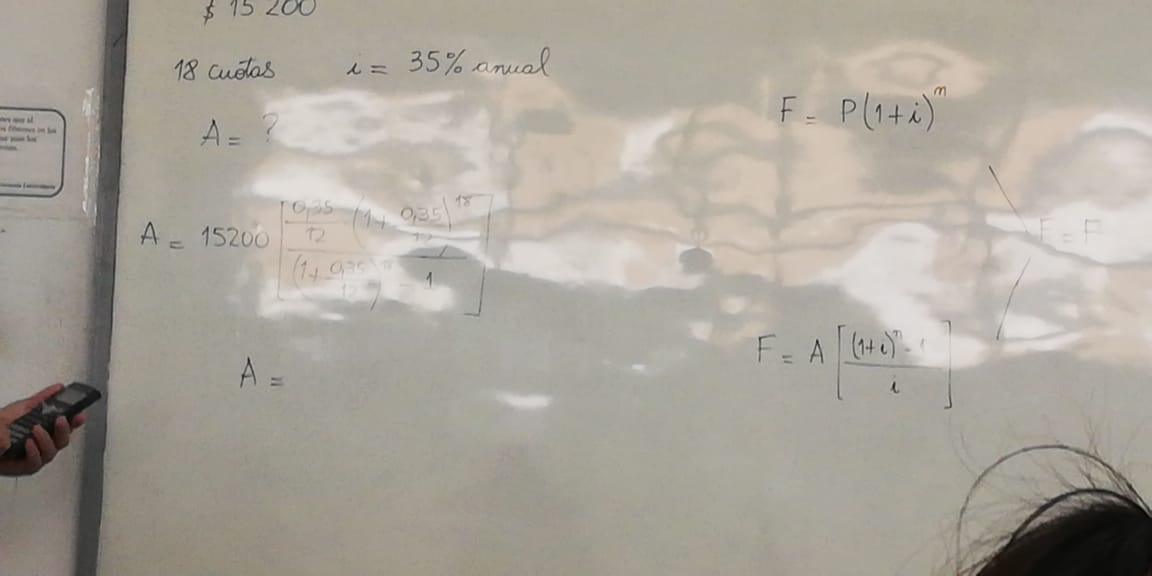 $ 15 200
18 cuotas i = 35% anual
A = ?
F = P(1+i)^n
A = 15200 [ 0,35/12 (1+ 0,35/12)^18 / (1+ 0,35/12)^18 - 1 ]
F = F
F = A [ (1+i)^n - 1 / i ]
A =